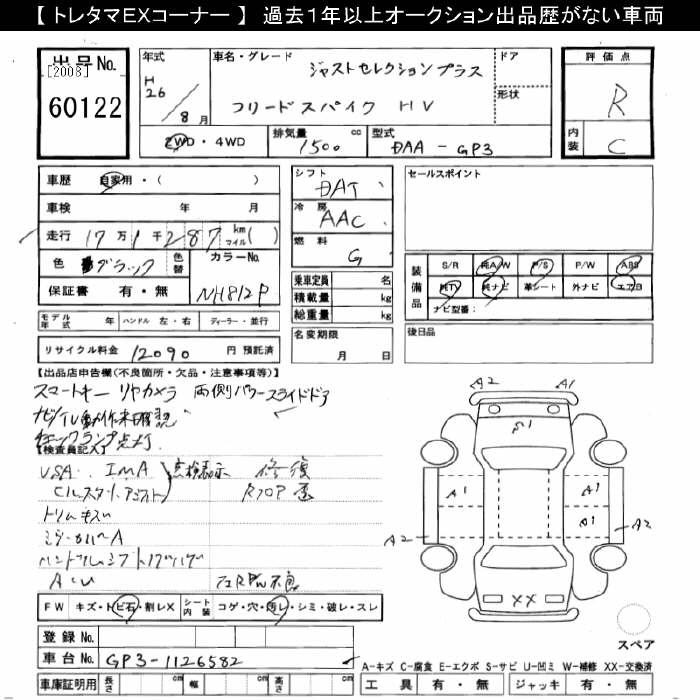 【 トレタマEXコーナー 】 過去1年以上オークション出品歴がない車両
出品No.
[2008]
60122
年式
H
26
8月
車名・グレード
ジャストセレクションプラス
フリードスパイク HV
ドア
形状
2WD・4WD
排気量
1500 cc
型式
DAA-GP3
評価点
R
内装
C
車歴 自家用・( )
車検 年 月
走行 17万1千287 km マイル( )
色 ブラック
色替
カラーNo.
NH812P
保証書 有・無
シフト
DAT
冷房
AAC
燃料
G
セールスポイント
乗車定員 名
積載量 kg
総重量 kg
装備品
S/R 純A/W P/S P/W ABS
純TV 純ナビ 革シート 外ナビ エアB
ナビ型番:
モデル年式 年 ハンドル 左・右 ディーラー・並行
名変期限
月 日
後日品
リサイクル料金 12090 円 預託済
【出品店申告欄(不良箇所・欠品・注意事項等)】
スマートキー リヤカメラ 両側パワースライドドア
ナビTV動作未確認
【検査員記入】
VSA. IMA 点検表示 修復
トリムキズ
A2
A1
S1
A1
A1
A1
A2
A2
XX
スペア
FW キズ・トビ石・割レX
シート内装 コゲ・穴・汚レ・シミ・破レ・スレ
登録No.
車台No. GP3-1126582
車庫証明用 長さ cm 幅 cm 高さ cm
A-キズ C-腐食 E-エクボ S-サビ U-凹ミ W-補修 XX-交換済
工具 有・無 ジャッキ 有・無